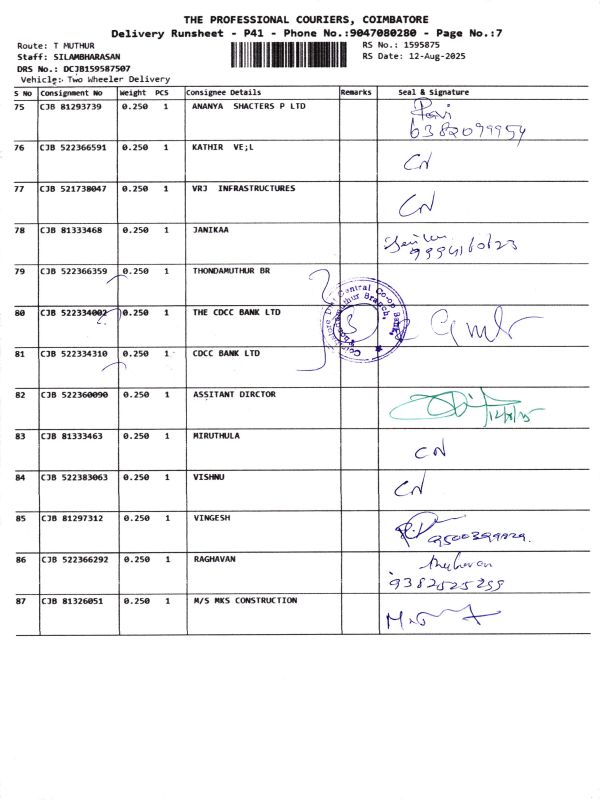 THE PROFESSIONAL COURIERS, COIMBATORE
Delivery Runsheet - P41 - Phone No.:9047080280 - Page No.:7
Route: T MUTHUR RS No.: 1595875
Staff: SILAMBHARASAN RS Date: 12-Aug-2025
DRS No.: DCJB159587507
Vehicle: Two Wheeler Delivery
S No Consignment No Weight PCS Consignee Details Remarks Seal & Signature
75 CJB 81293739 0.250 1 ANANYA SHACTERS P LTD Ravi
6382099954
76 CJB 522366591 0.250 1 KATHIR VE;L CN
77 CJB 521738047 0.250 1 VRJ INFRASTRUCTURES CN
78 CJB 81333468 0.250 1 JANIKAA
79 CJB 522366359 0.250 1 THONDAMUTHUR BR
80 CJB 522334002 0.250 1 THE CDCC BANK LTD 3
81 CJB 522334310 0.250 1 CDCC BANK LTD
82 CJB 522360090 0.250 1 ASSITANT DIRCTOR 12/8/25
83 CJB 81333463 0.250 1 MIRUTHULA CN
84 CJB 522383063 0.250 1 VISHNU CN
85 CJB 81297312 0.250 1 VINGESH
86 CJB 522366292 0.250 1 RAGHAVAN Raghavan
9382525255
87 CJB 81326051 0.250 1 M/S MKS CONSTRUCTION